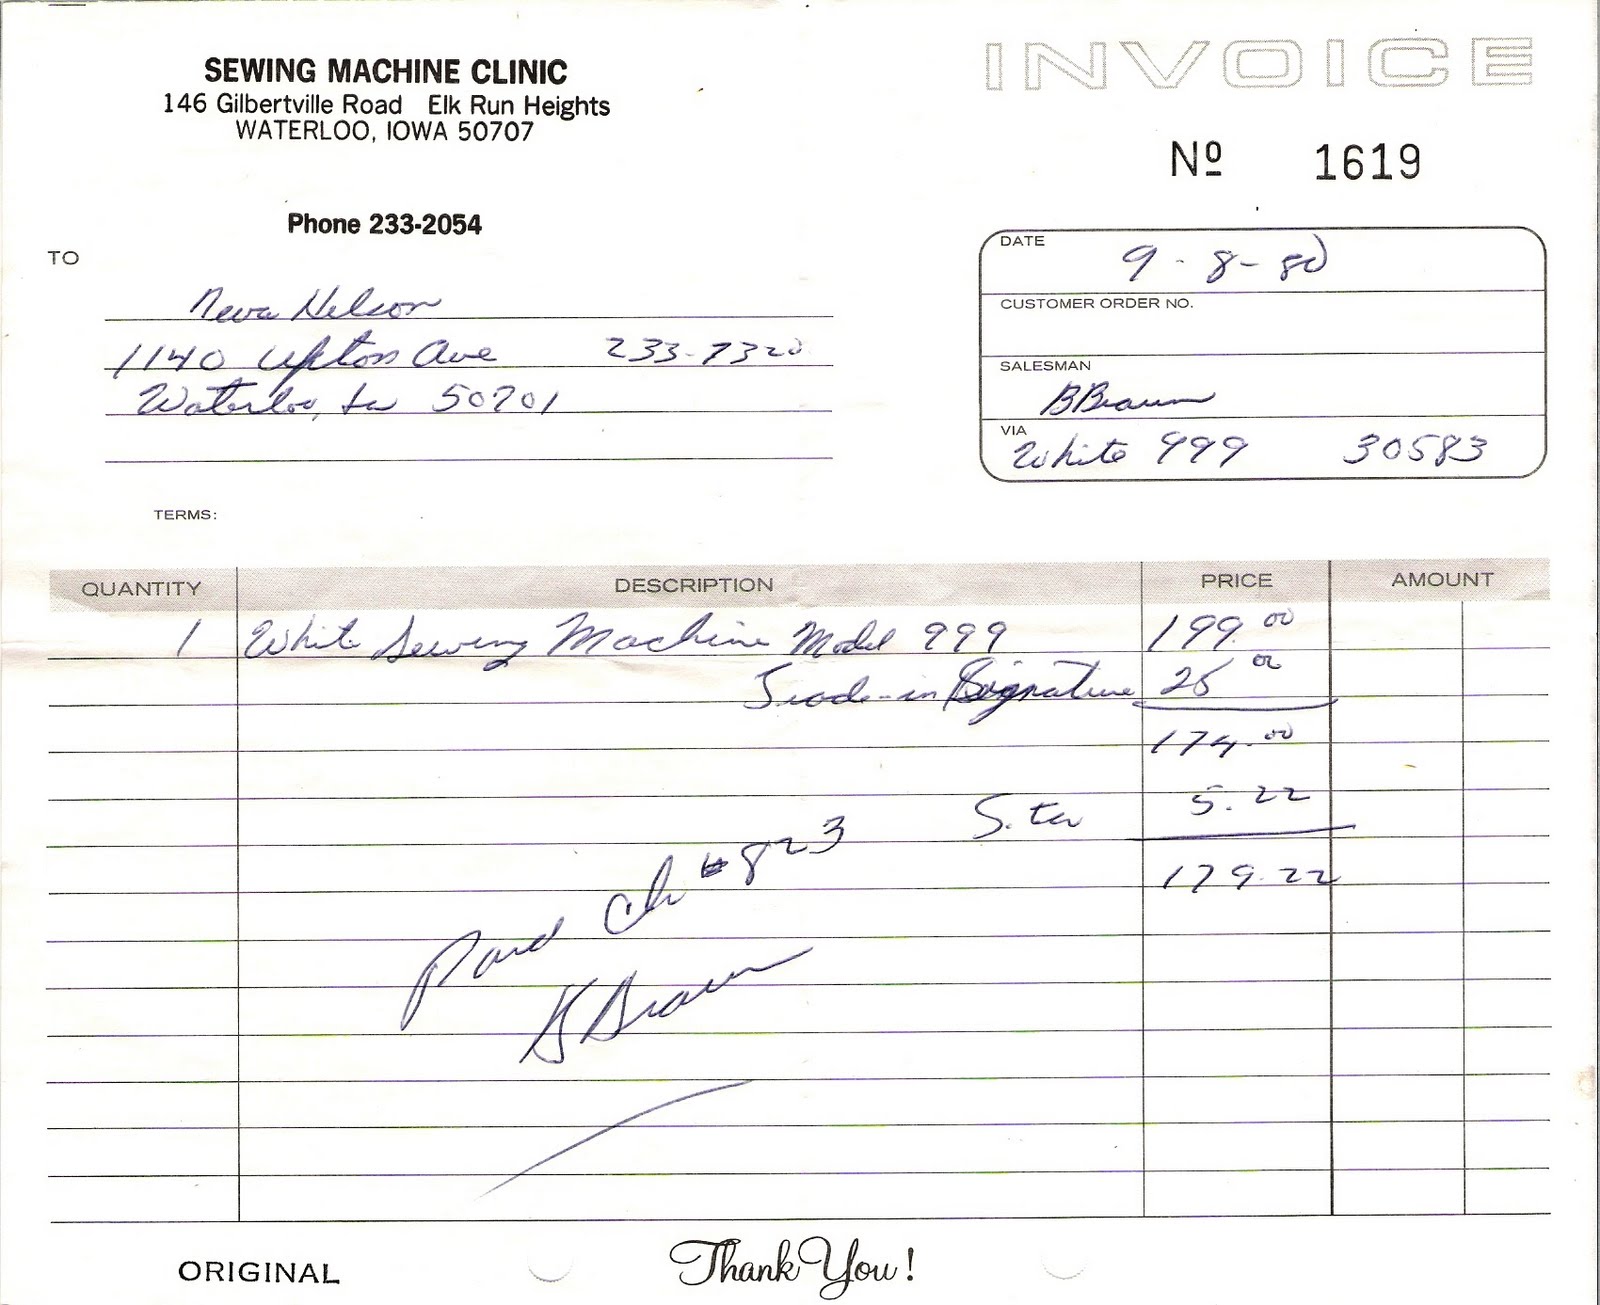 SEWING MACHINE CLINIC
146 Gilbertville Road Elk Run Heights
WATERLOO, IOWA 50707
Phone 233-2054
INVOICE
Nº 1619
TO
Neva Nelson
1140 Upton Ave 233-7320
Waterloo, Ia 50701
DATE 9-8-80
CUSTOMER ORDER NO.
SALESMAN
BBraun
VIA
White 999 30583
TERMS:
QUANTITY DESCRIPTION PRICE AMOUNT
1 White Sewing Machine Model 999 199.00
Trade-in Signature 25 00
174.00
S. tax 5.22
179.22
Paid Ch #823
B Braun
ORIGINAL
Thank You!